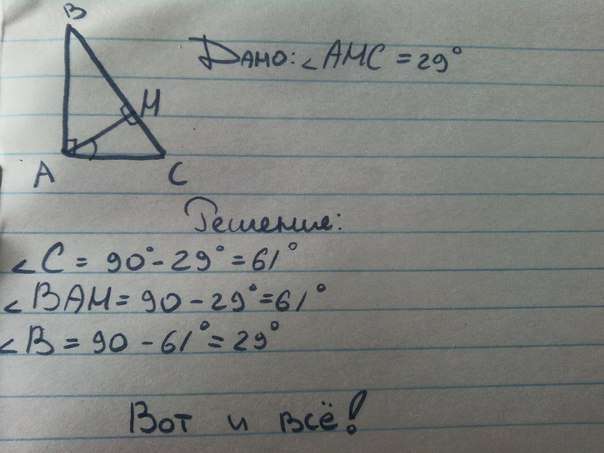 B
Дано: ∠AMC = 29°
M
A
C
Решение:
∠C = 90° - 29° = 61°
∠BAM = 90 - 29° = 61°
∠B = 90 - 61° = 29°
Вот и всё!